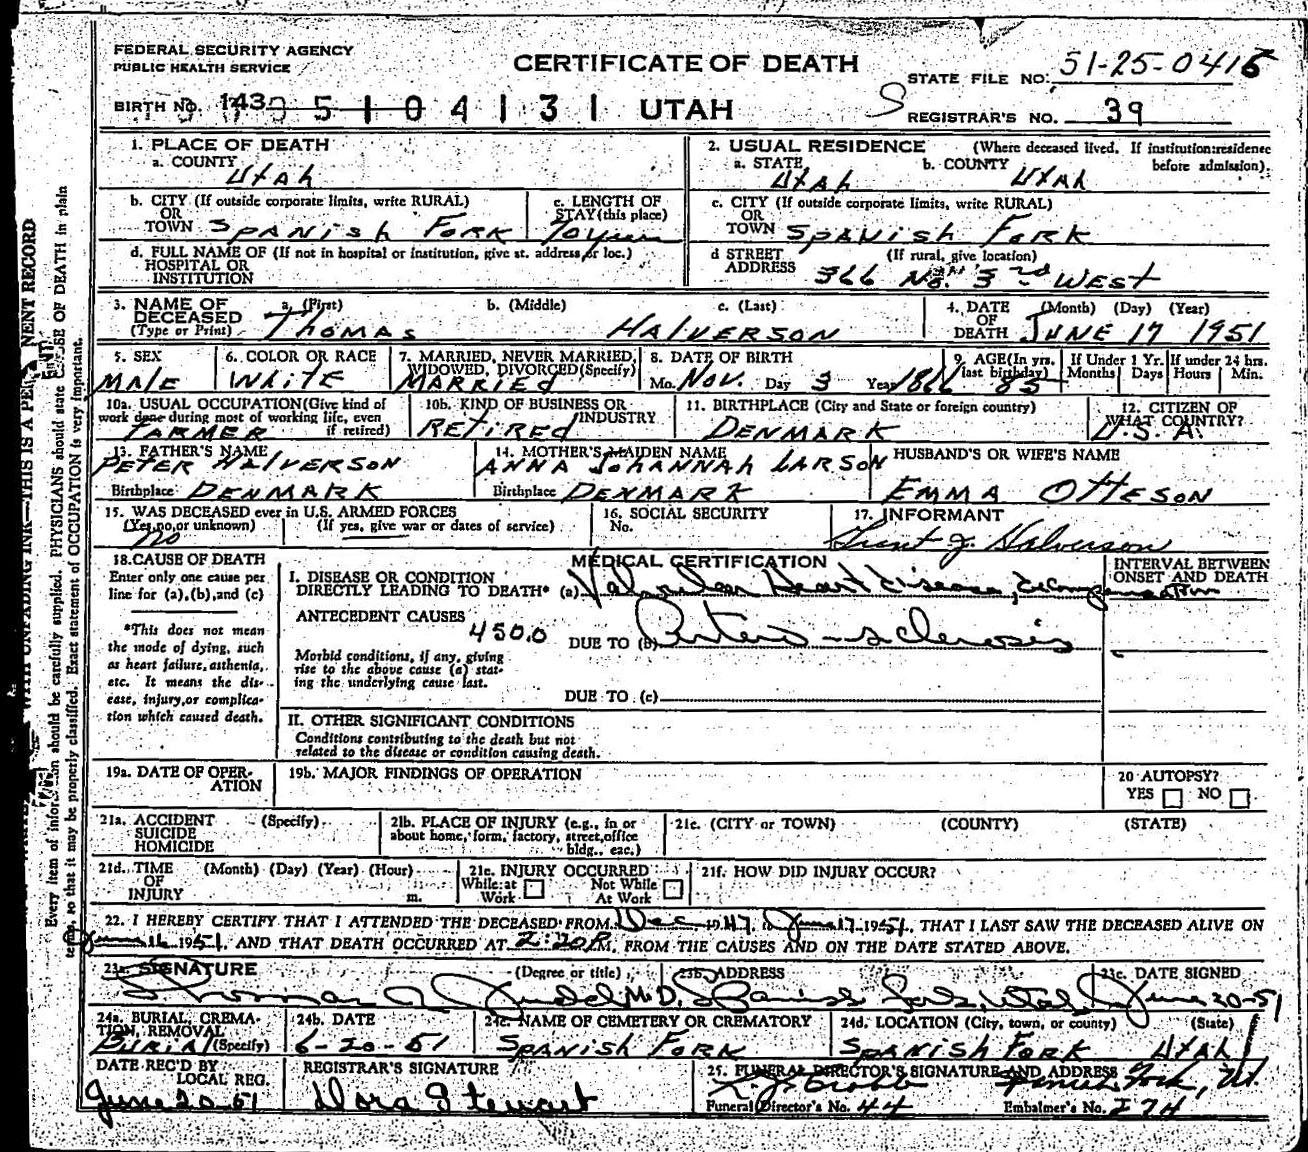 FEDERAL SECURITY AGENCY
PUBLIC HEALTH SERVICE
CERTIFICATE OF DEATH
STATE FILE NO: 51-25-0416
BIRTH NO. 143 5 1 0 4 1 3 1 UTAH
REGISTRAR'S NO. 39
1. PLACE OF DEATH
a. COUNTY
Utah
2. USUAL RESIDENCE (Where deceased lived. If institution: residence before admission).
a. STATE
Utah
b. COUNTY
Utah
b. CITY (If outside corporate limits, write RURAL)
OR
TOWN Spanish Fork
c. LENGTH OF
STAY (this place)
70 years
c. CITY (If outside corporate limits, write RURAL)
OR
TOWN Spanish Fork
d. FULL NAME OF (If not in hospital or institution, give st. address, or loc.)
HOSPITAL OR
INSTITUTION
d STREET (If rural, give location)
ADDRESS 366 No. 3rd West
3. NAME OF
DECEASED
(Type or Print)
a. (First) b. (Middle) c. (Last)
Thomas Halverson
4. DATE (Month) (Day) (Year)
OF
DEATH June 17 1951
5. SEX
Male
6. COLOR OR RACE
White
7. MARRIED, NEVER MARRIED,
WIDOWED, DIVORCED (Specify)
Married
8. DATE OF BIRTH
Mo. Nov. Day 3 Year 1866
9. AGE (In yrs.
last birthday)
85
If Under 1 Yr.
Months Days
If under 24 hrs.
Hours Min.
10a. USUAL OCCUPATION (Give kind of
work done during most of working life, even
if retired)
Farmer
10b. KIND OF BUSINESS OR
INDUSTRY
Retired
11. BIRTHPLACE (City and State or foreign country)
Denmark
12. CITIZEN OF
WHAT COUNTRY?
U.S.A.
13. FATHER'S NAME
Peter Halverson
Birthplace Denmark
14. MOTHER'S MAIDEN NAME
Anna Johannah Larson
Birthplace Denmark
HUSBAND'S OR WIFE'S NAME
Emma Otteson
15. WAS DECEASED ever in U.S. ARMED FORCES
(Yes, no, or unknown) (If yes, give war or dates of service)
no
16. SOCIAL SECURITY
No.
17. INFORMANT
Grant J. Halverson
18. CAUSE OF DEATH
Enter only one cause per
line for (a), (b), and (c)
*This does not mean
the mode of dying, such
as heart failure, asthenia,
etc. It means the dis-
ease, injury, or complica-
tion which caused death.
MEDICAL CERTIFICATION
INTERVAL BETWEEN
ONSET AND DEATH
I. DISEASE OR CONDITION
DIRECTLY LEADING TO DEATH* (a) Valvular Heart Disease,
ANTECEDENT CAUSES
450.0
DUE TO (b) Arterio-sclerosis
Morbid conditions, if any, giving
rise to the above cause (a) stat-
ing the underlying cause last.
DUE TO (c)
II. OTHER SIGNIFICANT CONDITIONS
Conditions contributing to the death but not
related to the disease or condition causing death.
19a. DATE OF OPER-
ATION
19b. MAJOR FINDINGS OF OPERATION
20 AUTOPSY?
YES NO
21a. ACCIDENT (Specify)
SUICIDE
HOMICIDE
21b. PLACE OF INJURY (e.g., in or
about home, form, factory, street, office
bldg., eac.)
21c. (CITY or TOWN) (COUNTY) (STATE)
21d. TIME (Month) (Day) (Year) (Hour)
OF
INJURY m.
21e. INJURY OCCURRED
While at Work Not While At Work
21f. HOW DID INJURY OCCUR?
22. I HEREBY CERTIFY THAT I ATTENDED THE DECEASED FROM Dec 1947, June 17 1951, THAT I LAST SAW THE DECEASED ALIVE ON
June 16 1951, AND THAT DEATH OCCURRED AT 2:20 P.M. FROM THE CAUSES AND ON THE DATE STATED ABOVE.
23a. SIGNATURE (Degree or title) M.D.
23b. ADDRESS
Spanish Fork, Utah
23c. DATE SIGNED
June 20-51
24a. BURIAL, CREMA-
TION, REMOVAL
(Specify)
Burial
24b. DATE
6-20-51
24c. NAME OF CEMETERY OR CREMATORY
Spanish Fork
24d. LOCATION (City, town, or county) (State)
Spanish Fork Utah
DATE REC'D BY
LOCAL REG.
June 20-51
REGISTRAR'S SIGNATURE
Dora Stewart
25. FUNERAL DIRECTOR'S SIGNATURE AND ADDRESS
Spanish Fork, Ut.
Funeral Director's No. 44
Embalmer's No. 274